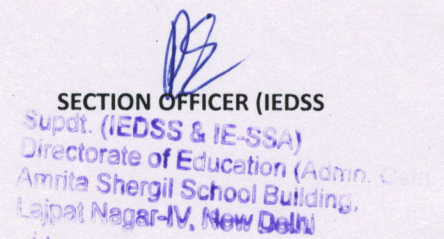 SECTION OFFICER (IEDSS
Supdt. (IEDSS & IE-SSA)
Directorate of Education (Admn.
Amrita Shergil School Building,
Lajpat Nagar-IV, New Delhi